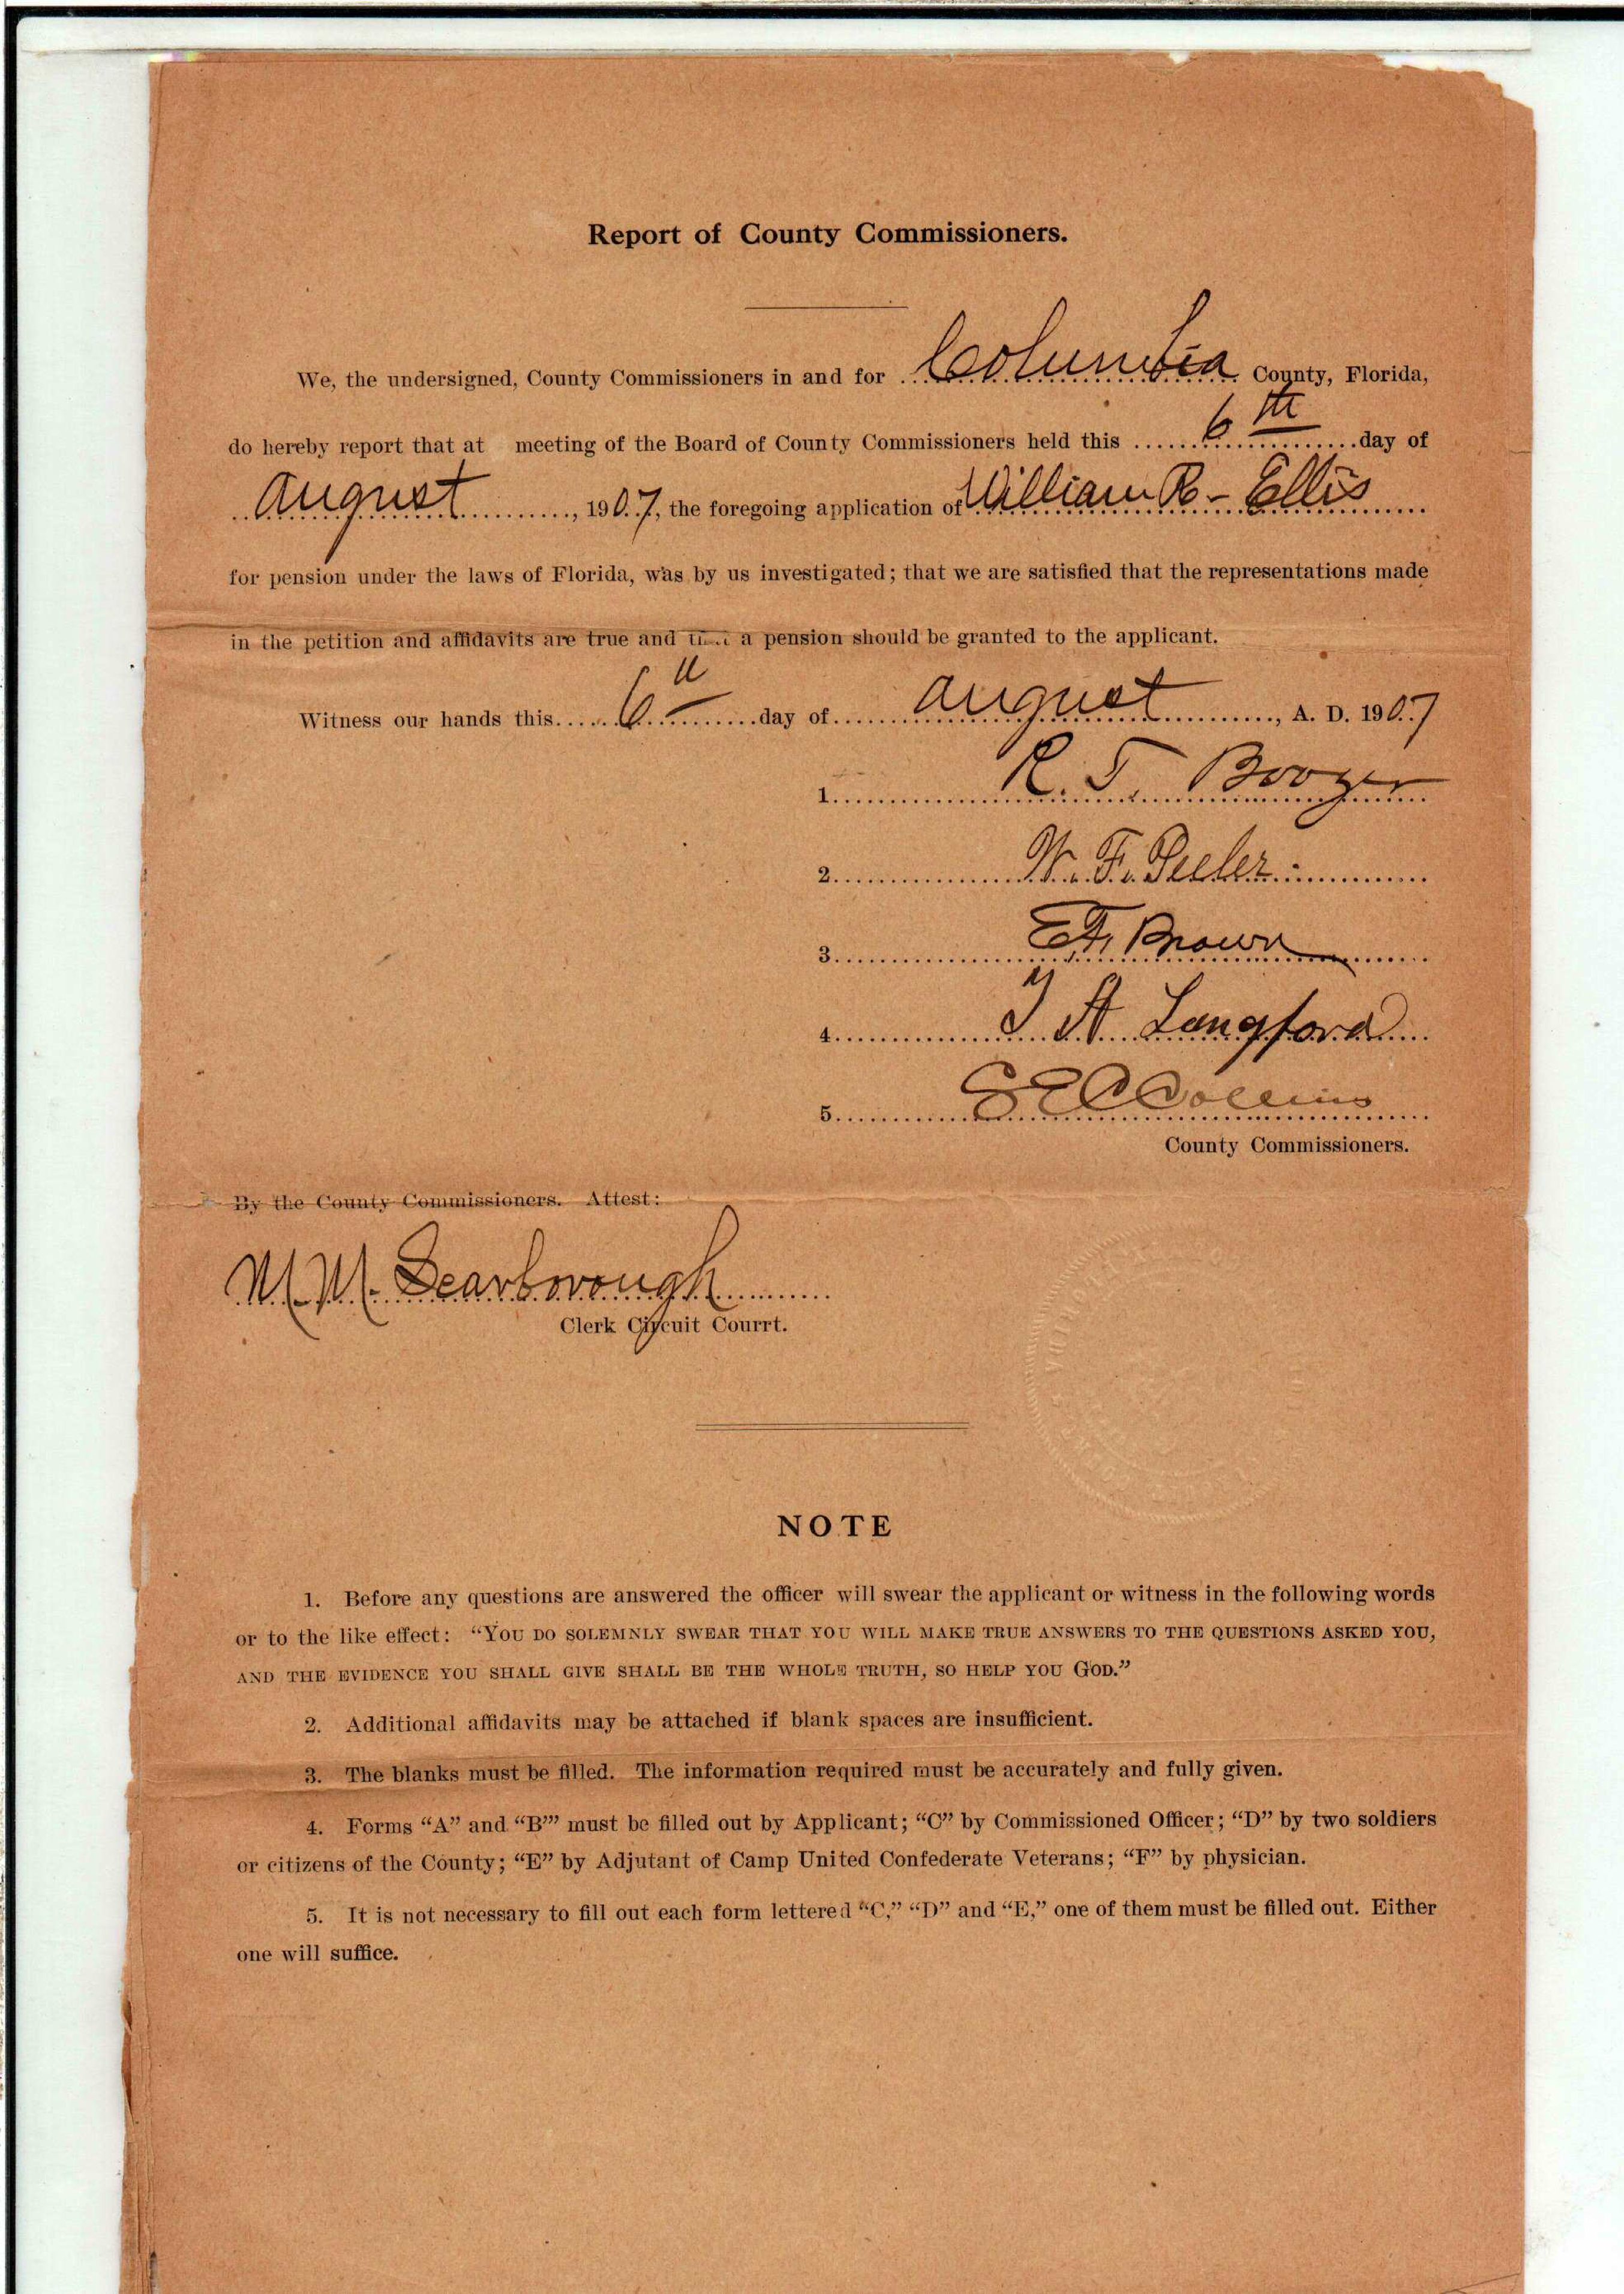 Report of County Commissioners.
We, the undersigned, County Commissioners in and for Columbia County, Florida,
do hereby report that at meeting of the Board of County Commissioners held this 6th day of
August, 1907, the foregoing application of William R- Ellis
for pension under the laws of Florida, was by us investigated; that we are satisfied that the representations made
in the petition and affidavits are true and that a pension should be granted to the applicant.
Witness our hands this 6th day of August, A. D. 1907
1. R. T. Boozer
2. W. F. Peeler
3. E.F. Brown
4. J A Langford
5. S E C Collins
County Commissioners.
By the County Commissioners. Attest:
M. M. Scarborough
Clerk Circuit Courrt.
NOTE
1. Before any questions are answered the officer will swear the applicant or witness in the following words
or to the like effect: “YOU DO SOLEMNLY SWEAR THAT YOU WILL MAKE TRUE ANSWERS TO THE QUESTIONS ASKED YOU,
AND THE EVIDENCE YOU SHALL GIVE SHALL BE THE WHOLE TRUTH, SO HELP YOU GOD.”
2. Additional affidavits may be attached if blank spaces are insufficient.
3. The blanks must be filled. The information required must be accurately and fully given.
4. Forms “A” and “B”’ must be filled out by Applicant; “C” by Commissioned Officer; “D” by two soldiers
or citizens of the County; “E” by Adjutant of Camp United Confederate Veterans; “F” by physician.
5. It is not necessary to fill out each form lettered “C,” “D” and “E,” one of them must be filled out. Either
one will suffice.